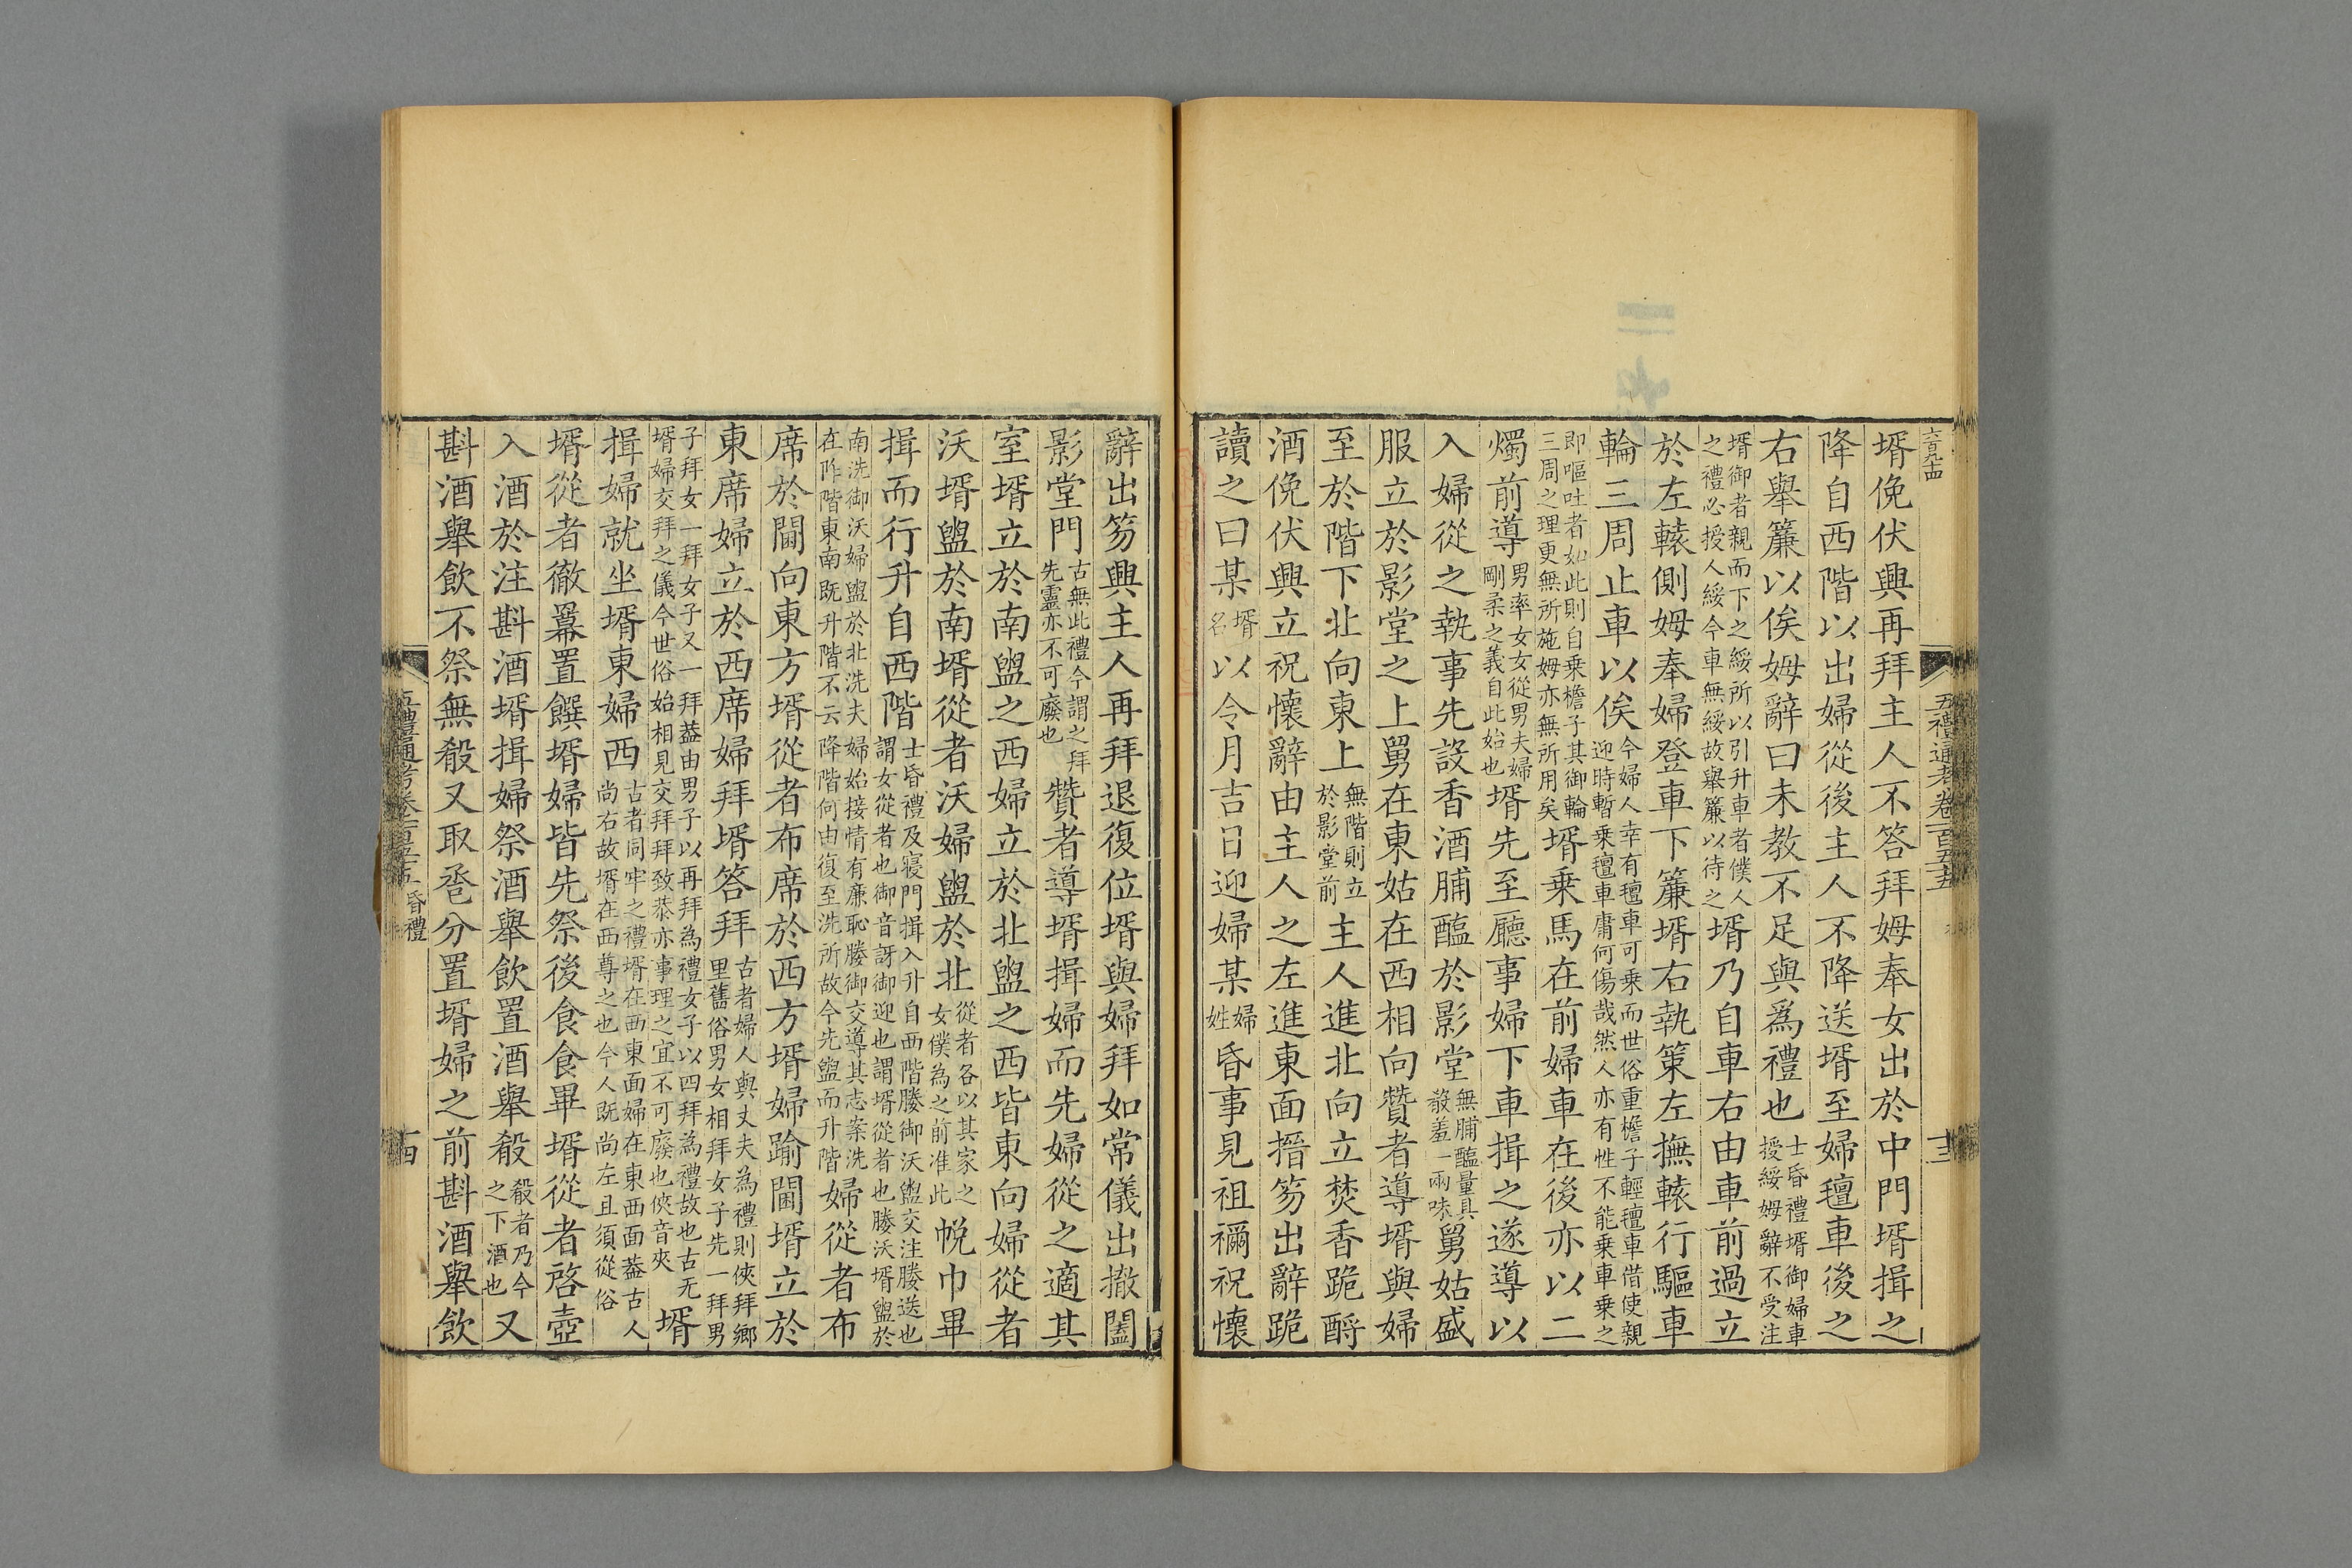 五禮通考卷一百五十五
十三
壻俛伏興再拜主人不答拜姆奉女出於中門壻揖之
降自西階以出婦從後主人不降送壻至婦氊車後之
右舉簾以俟姆辭曰未教不足與爲禮也士昏禮壻御婦車授綏姆辭不受注
壻御者親而下之綏所以引升車者僕人之禮必授人綏今車無綏故舉簾以待之壻乃自車右由車前過立
於左轅側姆奉婦登車下簾壻右執策左撫轅行驅車
輪三周止車以俟今婦人幸有氊車可乗而世俗重檐子輕氊車借使親迎時暫乗氊車庸何傷哉然人亦有性不能乗車乗之
即嘔吐者如此則自乗檐子其御輪三周之理更無所施姆亦無所用矣壻乗馬在前婦車在後亦以二
燭前導男率女女從男夫婦剛柔之義自此始也壻先至廳事婦下車揖之遂導以
入婦從之執事先設香酒脯醢於影堂無脯醢量具殽羞一兩味舅姑盛
服立於影堂之上舅在東姑在西相向贊者導壻與婦
至於階下北向東上無階則立於影堂前主人進北向立焚香跪酹
酒俛伏興立祝懷辭由主人之左進東面搢笏出辭跪
讀之曰某壻名以令月吉日迎婦某婦姓昏事見祖禰祝懷
辭出笏興主人再拜退復位壻與婦拜如常儀出撤闔
影堂門古無此禮今謂之拜先靈亦不可廢也贊者導壻揖婦而先婦從之適其
室壻立於南盥之西婦立於北盥之西皆東向婦從者
沃壻盥於南壻從者沃婦盥於北從者各以其家之女僕為之前准此帨巾畢
揖而行升自西階士昏禮及寢門揖入升自西階媵御沃盥交注媵送也謂女從者也御音訝御迎也謂壻從者也媵沃壻盥於
南洗御沃婦盥於北洗夫婦始接情有廉恥媵御交導其志案洗在阼階東南既升階不云降階何由復至洗所故今先盥而升階婦從者布
席於閫向東方壻從者布席於西方壻婦踰閫壻立於
東席婦立於西席婦拜壻答拜古者婦人與丈夫為禮則俠拜鄉里舊俗男女相拜女子先一拜男
子拜女一拜女子又一拜葢由男子以再拜為禮女子以四拜為禮故也古无壻婦交拜之儀今世俗始相見交拜拜致恭亦事理之宜不可廢也俠音夾壻
揖婦就坐壻東婦西古者同牢之禮壻在西東面婦在東西面葢古人尚右故壻在西尊之也今人既尚左且須從俗
壻從者徹羃置饌壻婦皆先祭後食食畢壻從者啓壺
入酒於注斟酒壻揖婦祭酒舉飲置酒舉殽殽者乃今之下酒也又
斟酒舉飲不祭無殽又取卺分置壻婦之前斟酒舉飲
五禮通考卷一百五十五 昏禮
十四